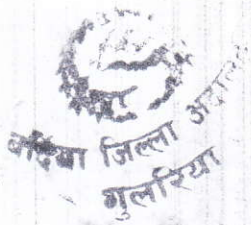 बर्दिया जिल्ला अदालत
गुलरिया